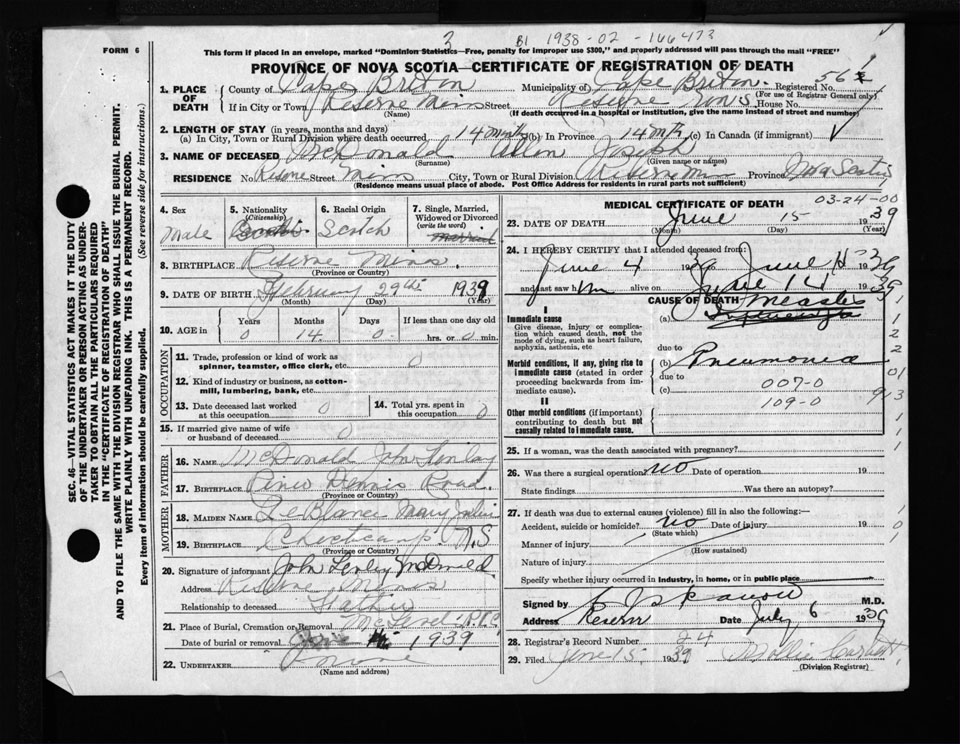 3 B1 1938-02-166473
FORM 6
This form if placed in an envelope, marked "Dominion Statistics—Free, penalty for improper use $300," and properly addressed will pass through the mail "FREE"
PROVINCE OF NOVA SCOTIA—CERTIFICATE OF REGISTRATION OF DEATH
1. PLACE OF DEATH County of Cape Breton Municipality of Cape Breton Registered No. 56
(For use of Registrar General only)
If in City or Town Reserve Mines Street Reserve Mines House No.
(Name) (If death occurred in a hospital or institution, give the name instead of street and number)
2. LENGTH OF STAY (in years, months and days)
(a) In City, Town or Rural Division where death occurred 14 months (b) In Province 14 mth (c) In Canada (if immigrant)
3. NAME OF DECEASED McDonald Allan Joseph
(Surname) (Given name or names)
RESIDENCE No. Reserve Street Mines City, Town or Rural Division Reserve Mines Province Nova Scotia
(Residence means usual place of abode. Post Office Address for residents in rural parts not sufficient)
SEC. 46—VITAL STATISTICS ACT MAKES IT THE DUTY
OF THE UNDERTAKER OR PERSON ACTING AS UNDER-
TAKER TO OBTAIN ALL THE PARTICULARS REQUIRED
IN THE "CERTIFICATE OF REGISTRATION OF DEATH"
AND TO FILE THE SAME WITH THE DIVISION REGISTRAR WHO SHALL ISSUE THE BURIAL PERMIT.
WRITE PLAINLY WITH UNFADING INK. THIS IS A PERMANENT RECORD.
Every item of information should be carefully supplied. (See reverse side for instructions.)
4. Sex Male
5. Nationality (Citizenship)
6. Racial Origin Scotch
7. Single, Married, Widowed or Divorced (write the word) married
8. BIRTHPLACE Reserve Mines
(Province or Country)
9. DATE OF BIRTH February 29th 1939
(Month) (Day) (Year)
10. AGE in Years 0 Months 14 Days 0 If less than one day old hrs. or 0 min.
OCCUPATION
11. Trade, profession or kind of work as spinner, teamster, office clerk, etc. 0
12. Kind of industry or business, as cotton-mill, lumbering, bank, etc.
13. Date deceased last worked at this occupation 0
14. Total yrs. spent in this occupation 0
15. If married give name of wife or husband of deceased 0
FATHER
16. NAME McDonald John Finlay
17. BIRTHPLACE Road
(Province or Country)
MOTHER
18. MAIDEN NAME LeBlanc Mary
19. BIRTHPLACE Cheticamp N.S
(Province or Country)
20. Signature of informant John McDonald
Address Reserve Mines
Relationship to deceased Father
21. Place of Burial, Cremation or Removal
Date of burial or removal 1939
22. UNDERTAKER
(Name and address)
MEDICAL CERTIFICATE OF DEATH 03-24-00
23. DATE OF DEATH June 15 1939
(Month) (Day) (Year)
24. I HEREBY CERTIFY that I attended deceased from:
June 4 1939 to June 14 1939
and last saw him alive on June 14 1939
CAUSE OF DEATH
I
Immediate cause
Give disease, injury or complication which caused death, not the mode of dying, such as heart failure, asphyxia, asthenia, etc.
(a) Measles
due to
Morbid conditions, if any, giving rise to immediate cause (stated in order proceeding backwards from immediate cause).
(b) Pneumonia
due to
(c) 007-0
109-0
II
Other morbid conditions (if important) contributing to death but not causally related to immediate cause.
25. If a woman, was the death associated with pregnancy?
26. Was there a surgical operation? no Date of operation 19
State findings Was there an autopsy?
27. If death was due to external causes (violence) fill in also the following:
Accident, suicide or homicide? no Date of injury 19
(State which)
Manner of injury
(How sustained)
Nature of injury
Specify whether injury occurred in industry, in home, or in public place
Signed by M.D.
Address Reserve Date July 6 1939
28. Registrar's Record Number 24
29. Filed June 15, 1939 Mollie
(Division Registrar)